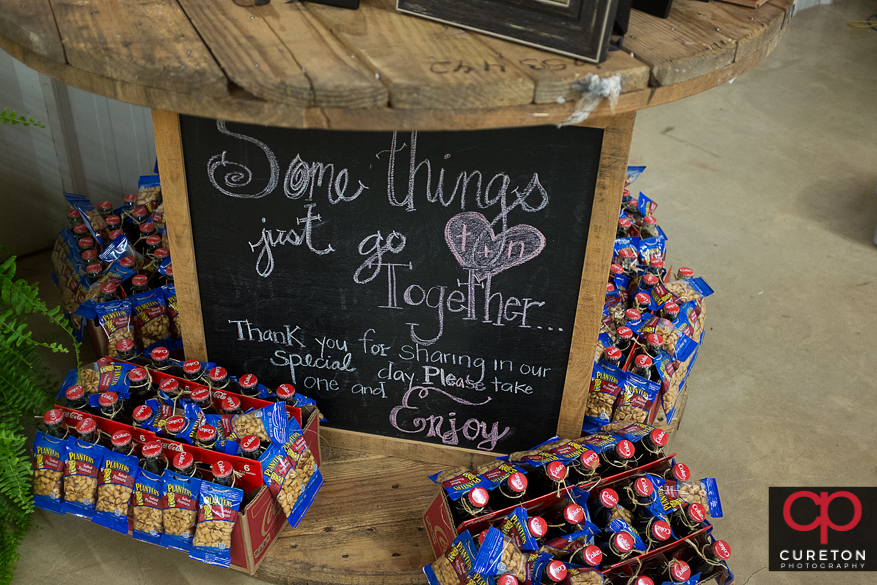 Some things
just go t+n
Together...
Thank you for sharing in our
special day. Please take
one and
Enjoy
PLANTERS
PLANTERS
PLANTERS
PLANTERS
PLANTERS
PLANTERS
Coca-Cola
cp
CURETON
PHOTOGRAPHY